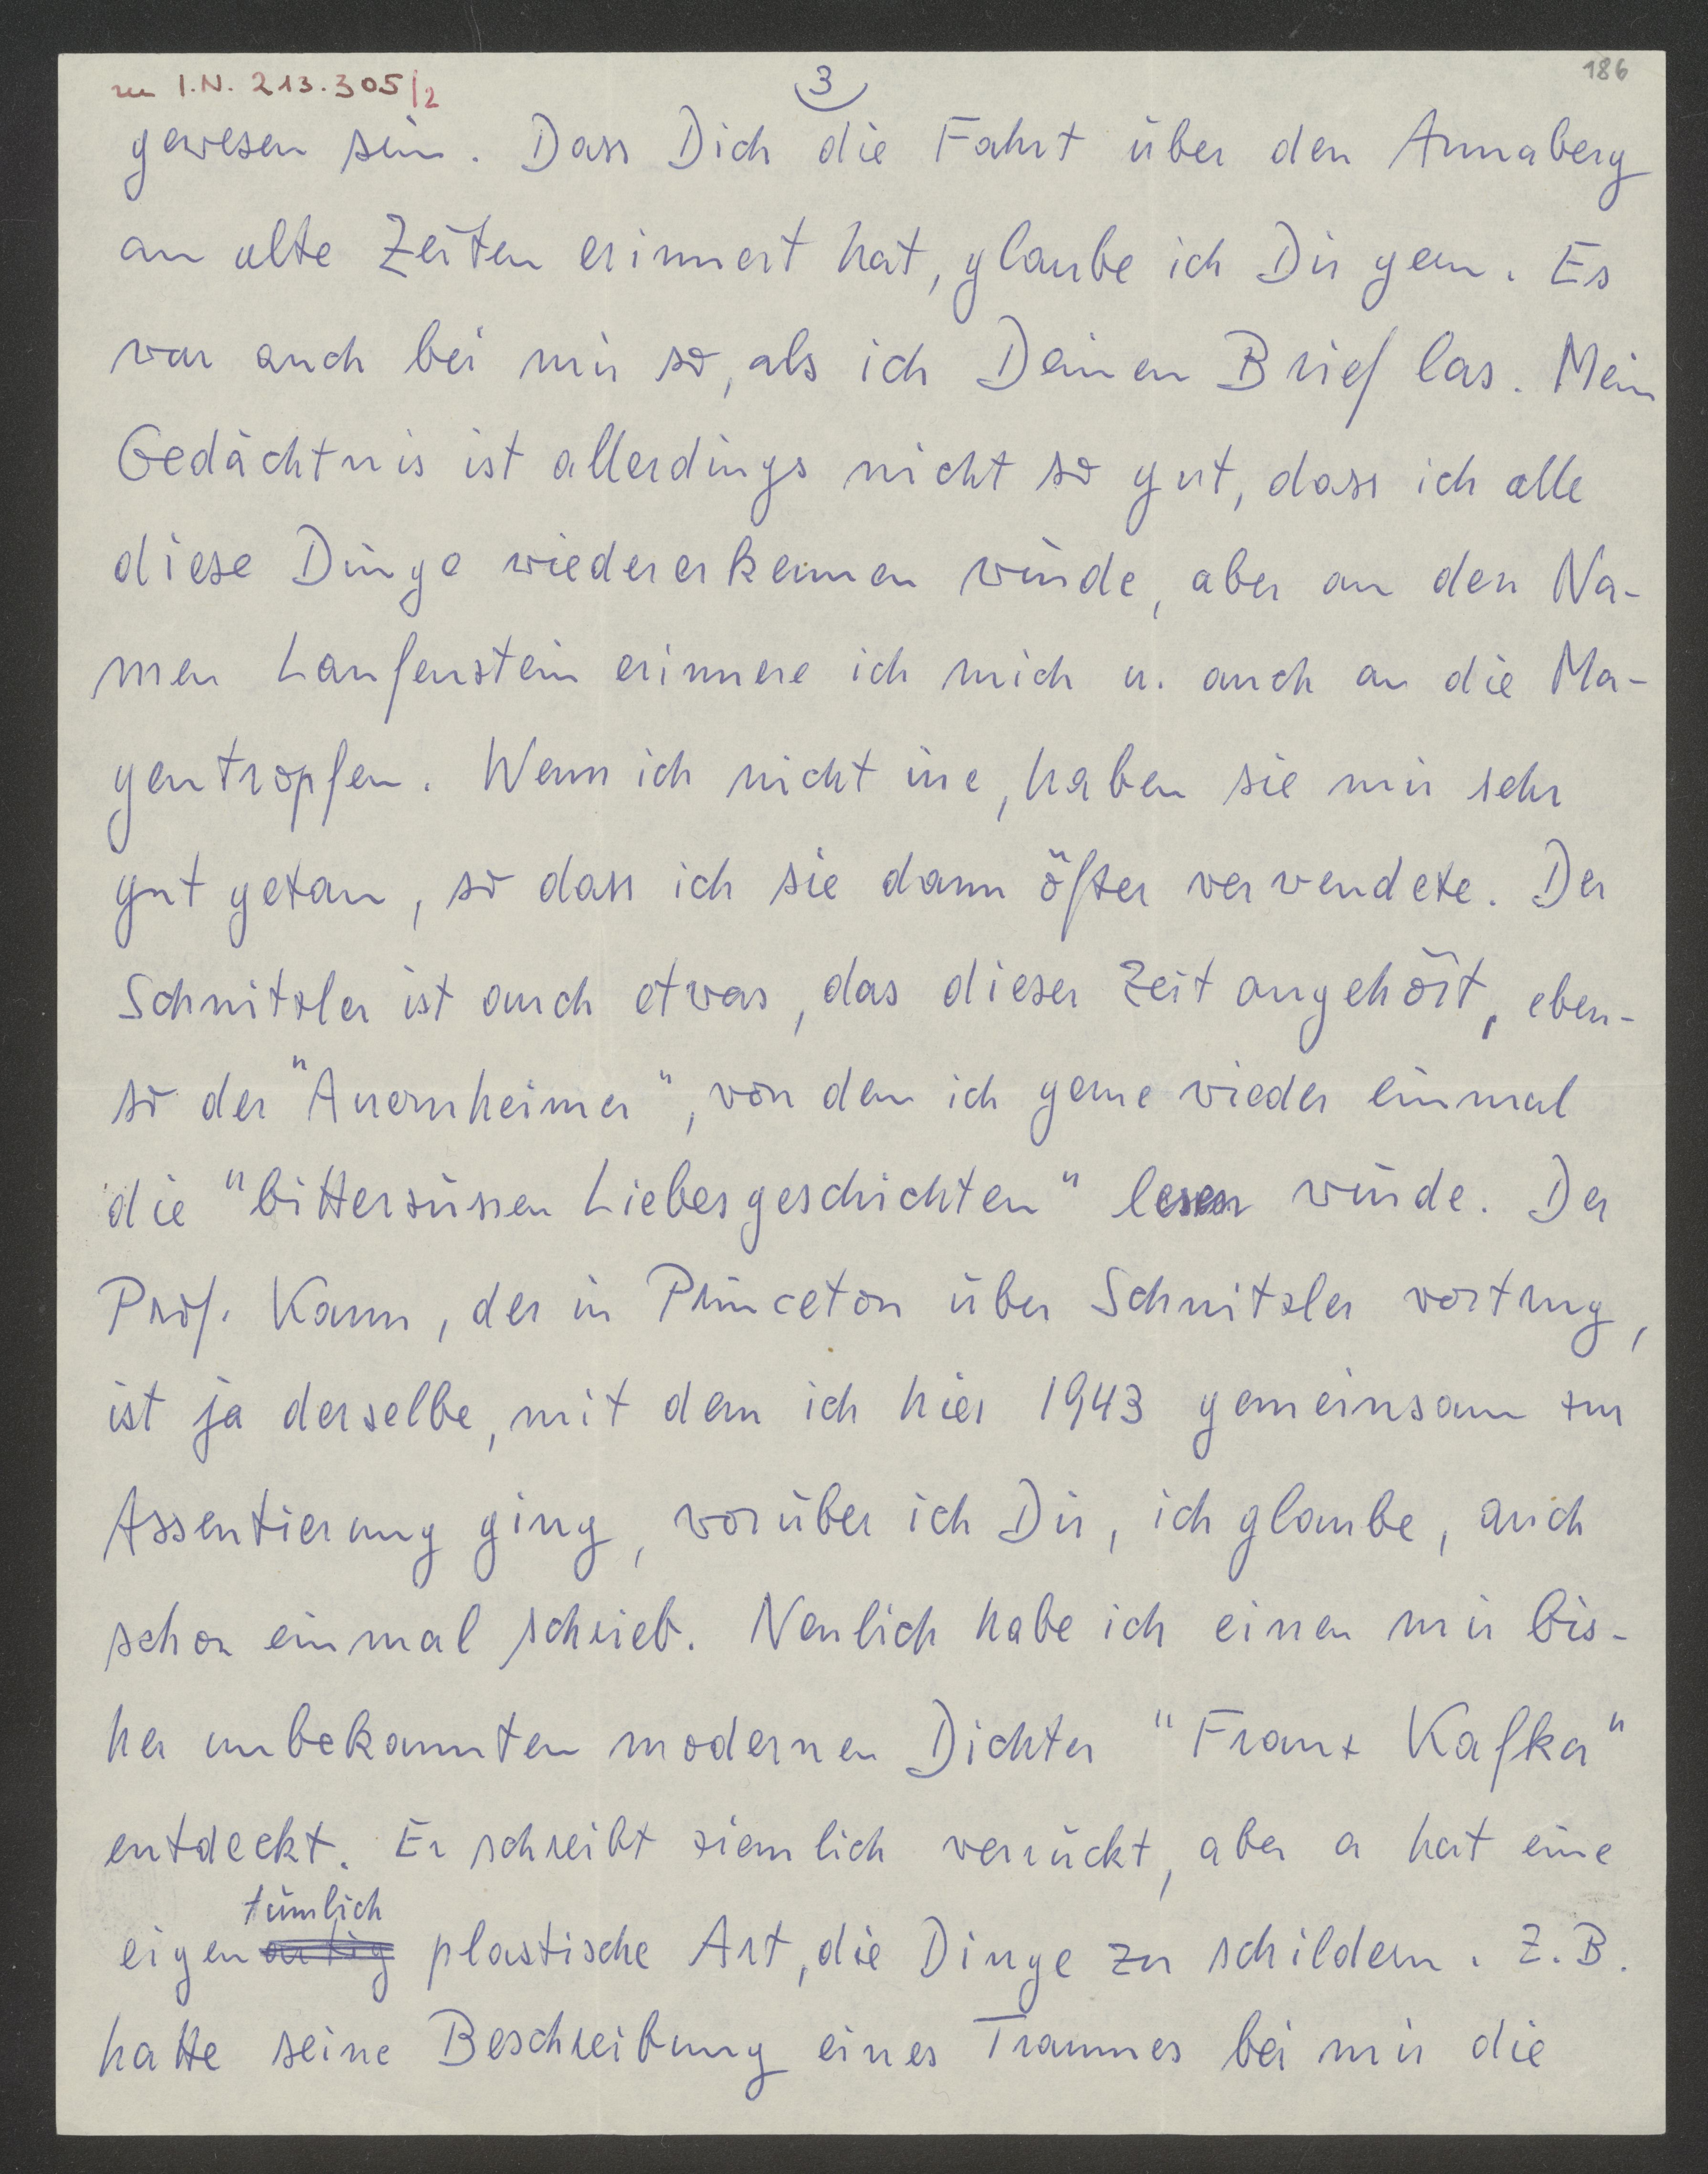 zu I.N. 213.305/2
3
186
gewesen sein. Dass Dich die Fahrt über den Annaberg
an alte Zeiten erinnert hat, glaube ich Dir gern. Es
war auch bei mir so, als ich Deinen Brief las. Mein
Gedächtnis ist allerdings nicht so gut, dass ich alle
diese Dinge wiedererkennen würde, aber an den Na-
men Laufenstein erinnere ich mich u. auch an die Ma-
gentropfen. Wenn ich nicht irre, haben sie mir sehr
gut getan, so dass ich sie dann öfter verwendete. Der
Schnitzler ist auch etwas, das dieser Zeit angehört, eben-
so der "Auernheimer", von dem ich gerne wieder einmal
die "bittersüssen Liebesgeschichten" lesen würde. Der
Prof. Kann, der in Princeton über Schnitzler vortrug,
ist ja derselbe, mit dem ich hier 1943 gemeinsam zur
Assentierung ging, worüber ich Dir, ich glaube, auch
schon einmal schrieb. Neulich habe ich einen mir bis-
her unbekannten modernen Dichter "Franz Kafka"
entdeckt. Er schreibt ziemlich verrückt, aber er hat eine
tümlich
eigenartig plastische Art, die Dinge zu schildern. Z.B.
hatte seine Beschreibung eines Traumes bei mir die